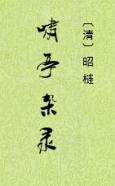 〔清〕昭梿
啸亭杂录